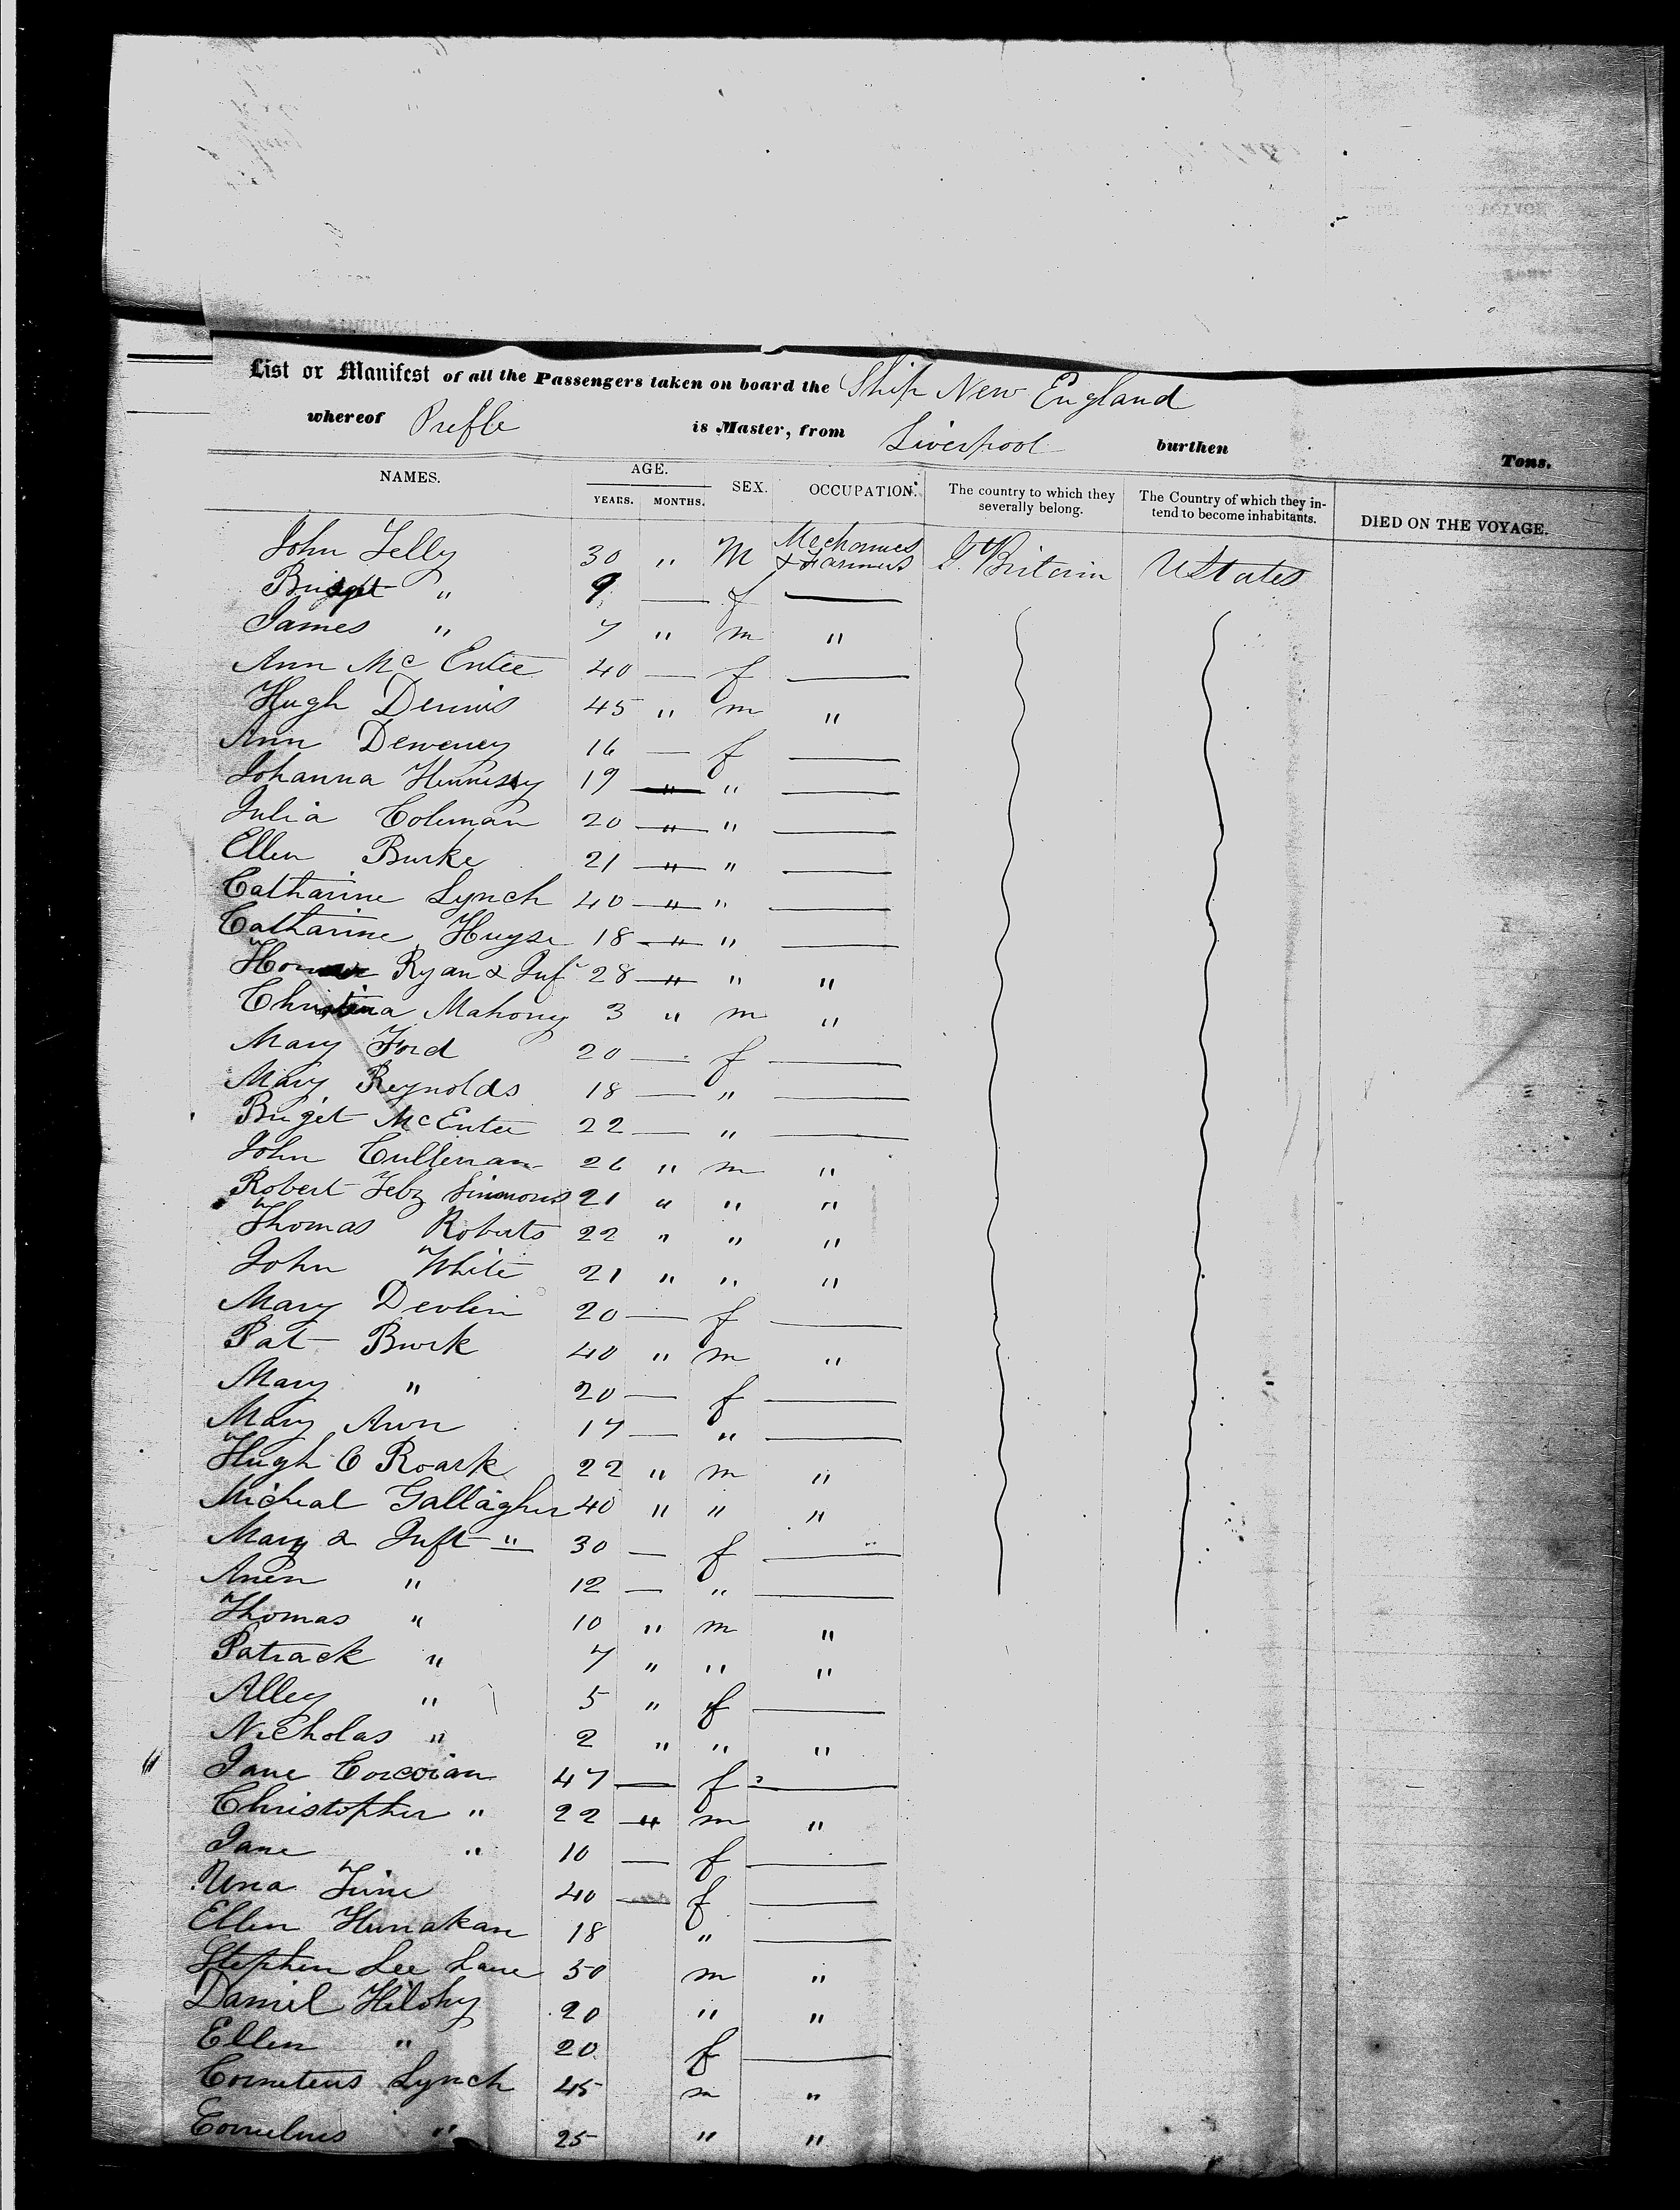 List or Manifest of all the Passengers taken on board the Ship New England
whereof Preble is Master, from Liverpool burthen Tons.
NAMES. AGE. YEARS. MONTHS. SEX. OCCUPATION. The country to which they severally belong. The Country of which they intend to become inhabitants. DIED ON THE VOYAGE.
John Felly 30 " M Mechanics & Farmers Gt. Britain U States
Bridget " 9 — f —
James " 7 " m "
Ann McEntee 40 — f —
Hugh Dennis 45 " m "
Ann Deweney 16 — f —
Johanna Hennessy 19 " " —
Julia Coleman 20 " " —
Ellen Burke 21 " " —
Catharine Lynch 40 " " —
Catharine 18 " " —
Ryan & Inft 28 " " "
Christina Mahony 3 " m "
Mary Ford 20 — f —
Mary Reynolds 18 — " —
Briget McEntee 22 — " —
John Cullenan 26 " m "
Robert Simmons 21 " " "
Thomas Roberts 22 " " "
John White 21 " " "
Mary Devlin 20 — f —
Pat Burk 40 " m "
Mary " 20 — f —
Mary Ann 17 — " —
Hugh O Roark 22 " m "
Micheal Gallagher 40 " " "
Mary & Inft " 30 — f —
Anen " 12 — " —
Thomas " 10 " m "
Patrack " 7 " " "
Alley " 5 " f —
Nicholas " 2 " " "
Jane Corcoran 47 — f —
Christopher " 22 " m "
Jane " 10 — f —
Una 40 — f —
Ellen Hunakan 18 " —
Stephen Lee Lane 50 m "
Daniel 20 " "
Ellen " 20 f —
Lynch 45 m "
Cornelius " 25 " "